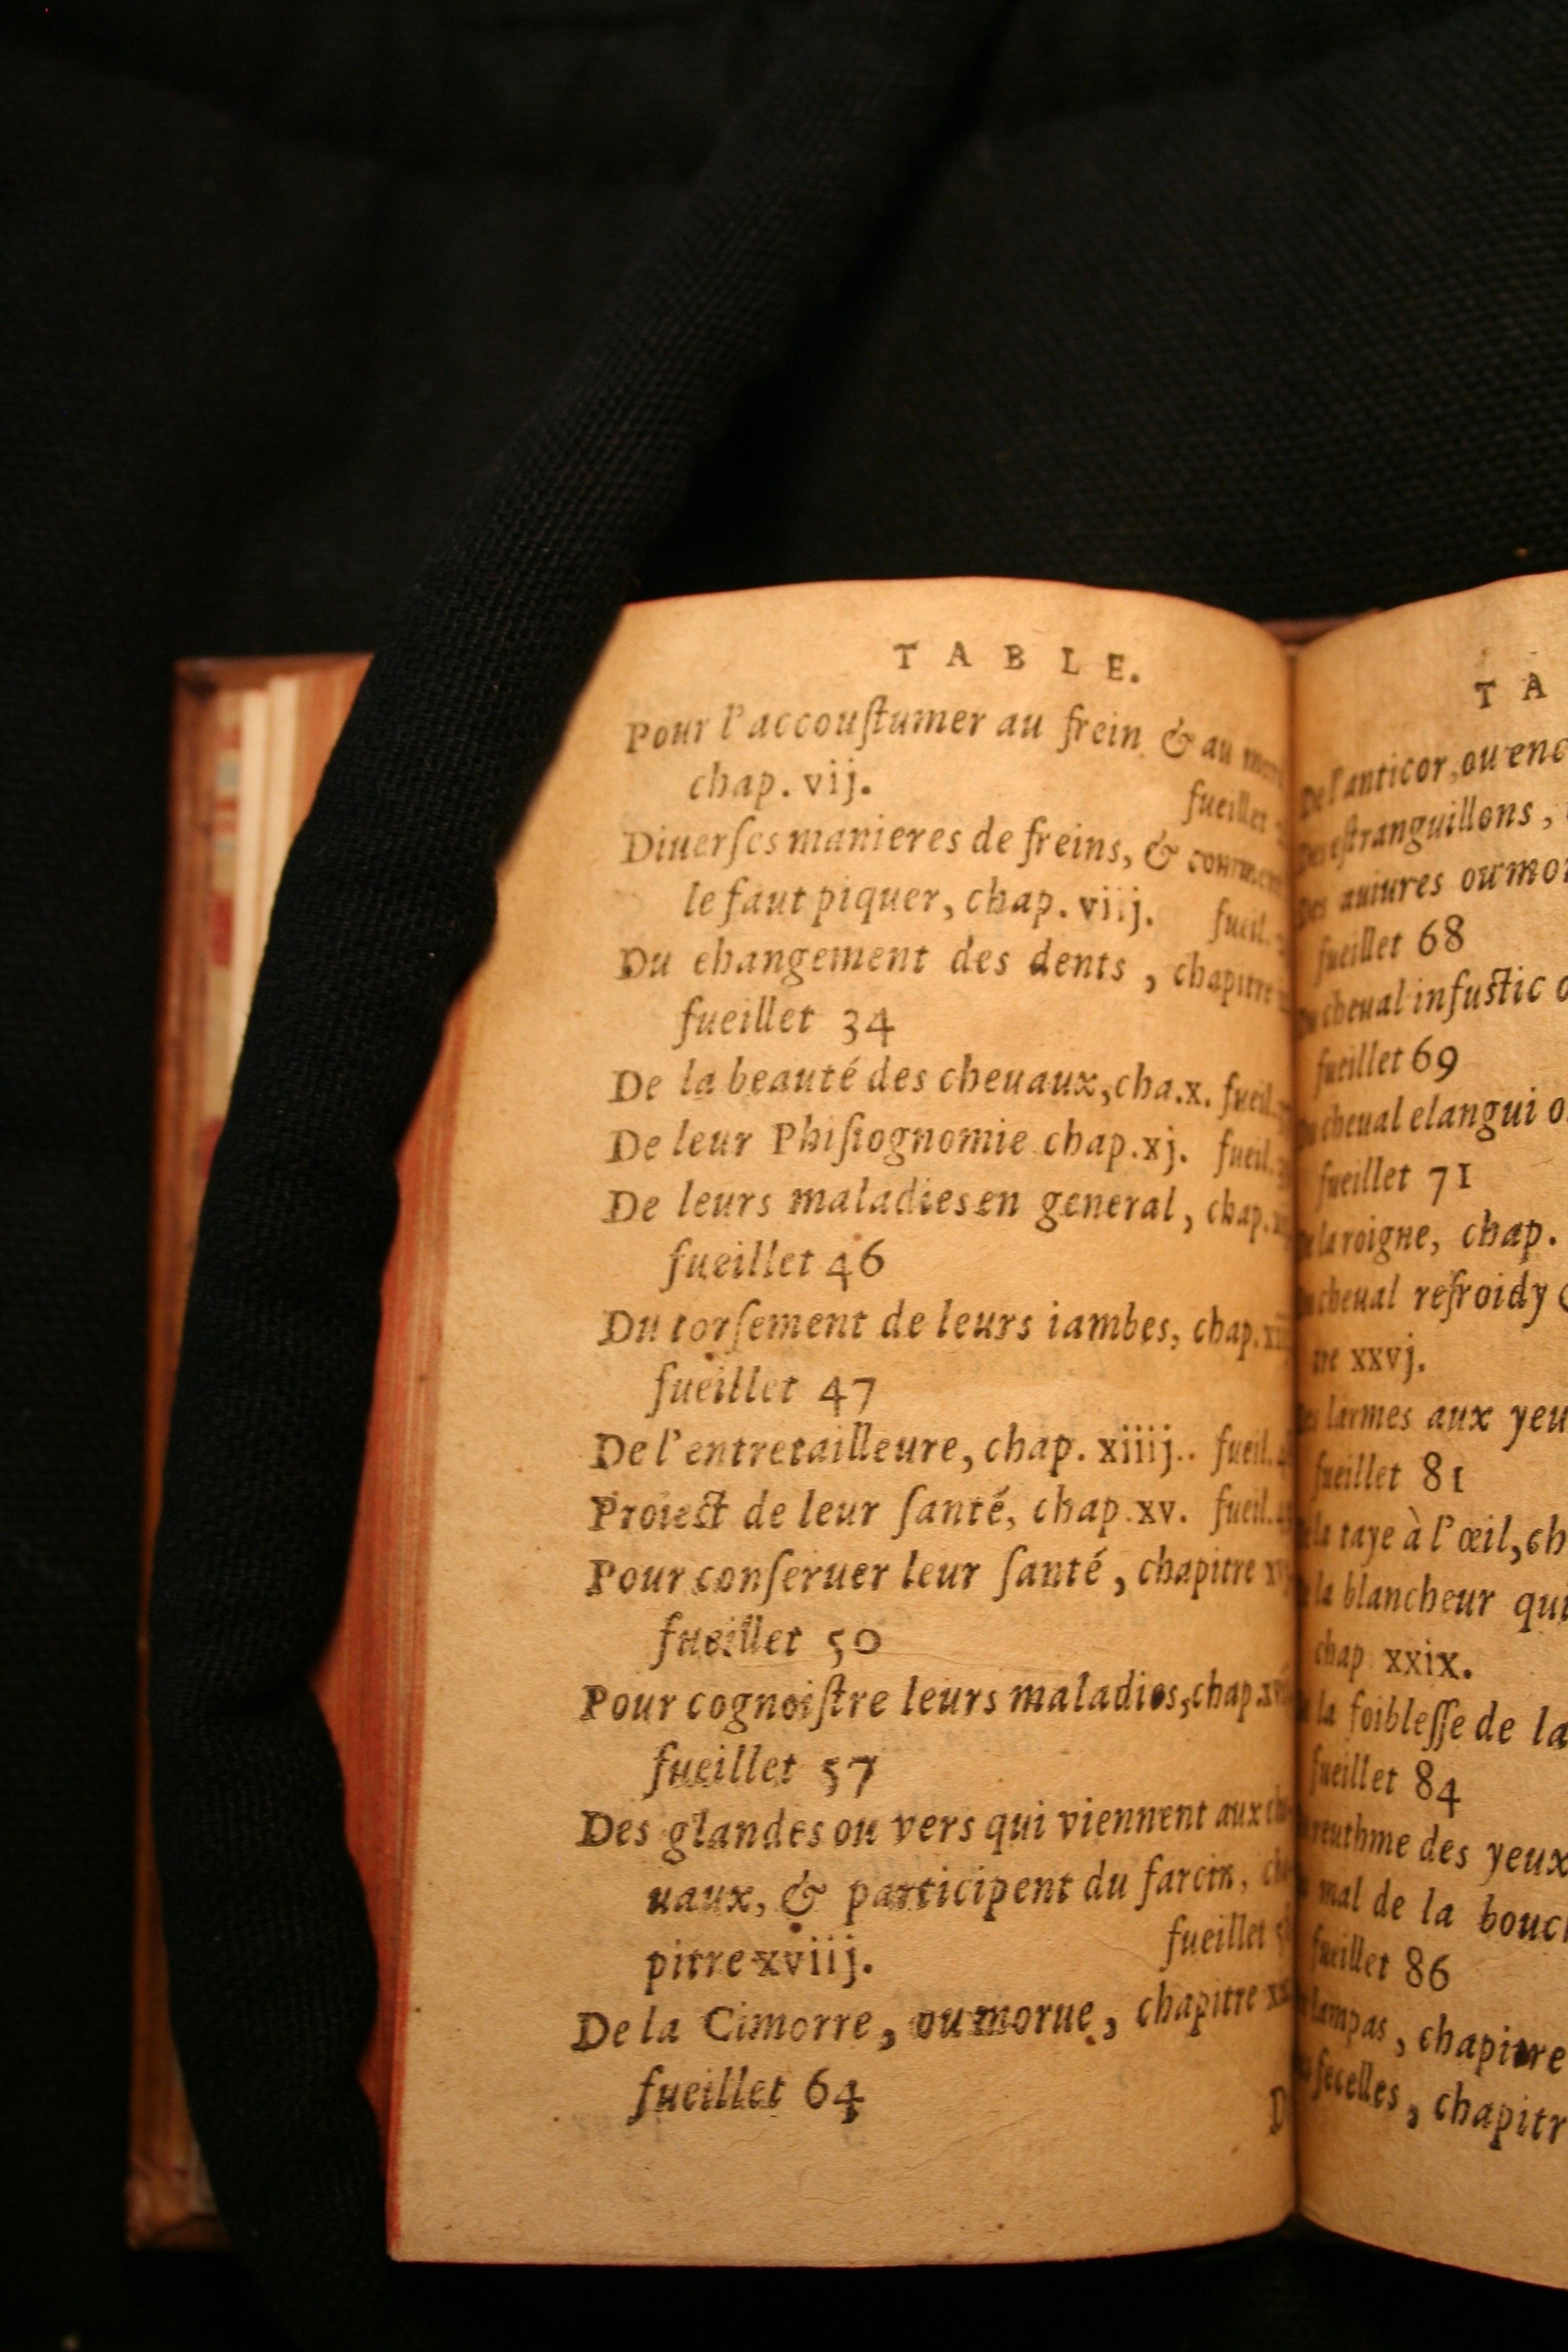 TABLE.
Pour l'accouſtumer au frein & au
chap. vij. fueillet
Diuerſes manieres de freins, &
le faut piquer, chap. viij. fueil.
Du changement des dents, chapitre
fueillet 34
De la beauté des cheuaux, cha.x. fueil.
De leur Phiſiognomie chap.xj. fueil.
De leurs maladies en general, chap.
fueillet 46
Du torſement de leurs iambes, chap.
fueillet 47
De l'entretailleure, chap. xiiij.. fueil.
Proiect de leur ſanté, chap.xv. fueil.
Pour conſeruer leur ſanté, chapitre
fueillet 50
Pour cognoiſtre leurs maladies, chap.
fueillet 57
Des glandes ou vers qui viennent aux
uaux, & participent du farcin,
pitre xviij. fueillet
De la Cimorre, ou morue, chapitre
fueillet 64
D
TA
l'anticor, ou
eſtranguillons,
auiures ou
fueillet 68
cheual infuſtic
fueillet 69
cheual elangui
fueillet 71
la roigne, chap.
cheual refroidy
xxvj.
larmes aux
fueillet 81
la taye à l'œil,
la blancheur
chap xxix.
la foibleſſe de
fueillet 84
des yeux
mal de la
fueillet 86
lampas, chapitre